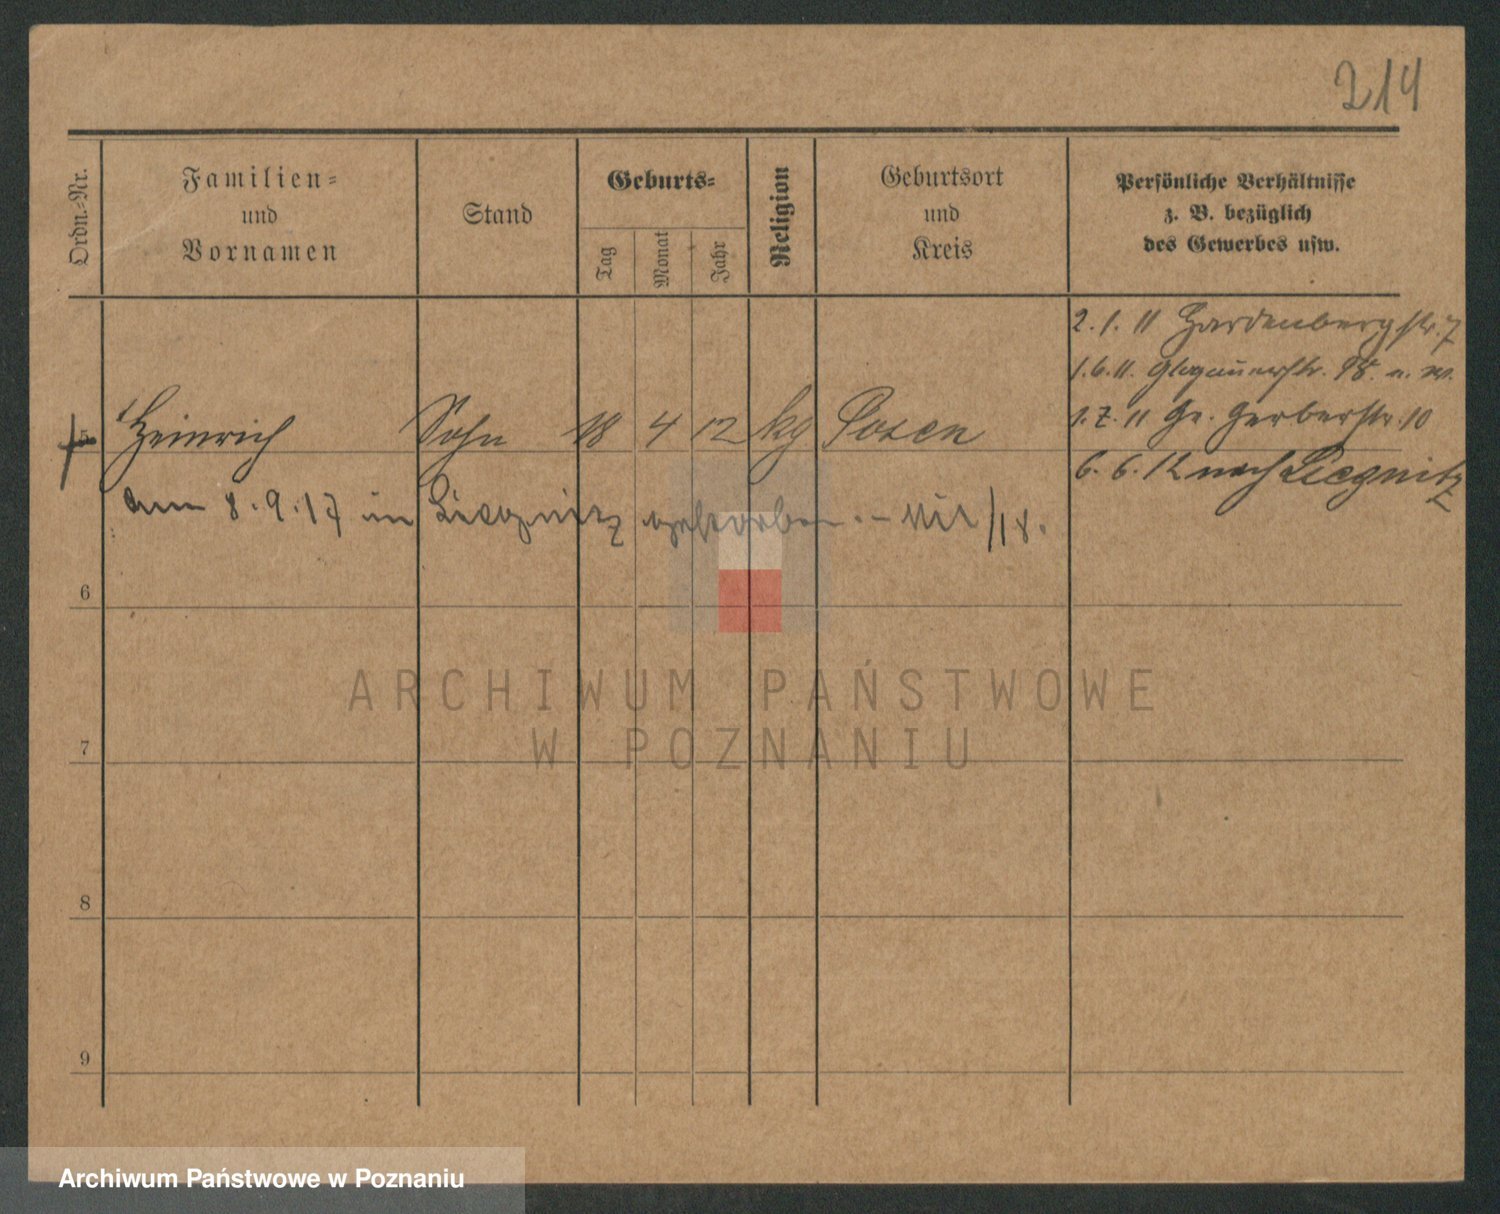 214
Ordn.-Nr.
Familien-
und
Vornamen
Stand
Geburts-
Tag
Monat
Jahr
Religion
Geburtsort
und
Kreis
Persönliche Verhältnisse
z. B. bezüglich
des Gewerbes usw.
2. 1. 11 Hardenbergstr. 7
1. 6. 11. Glogauerstr. 98.
1. 7. 11 Gr. Gerberstr. 10
5 Heinrich Sohn 18 4 12 kg Posen
6. 6. 12 nach Liegnitz
am 8. 9. 17 in Liegnitz gestorben. –
6
ARCHIWUM PAŃSTWOWE
W POZNANIU
7
8
9
Archiwum Państwowe w Poznaniu